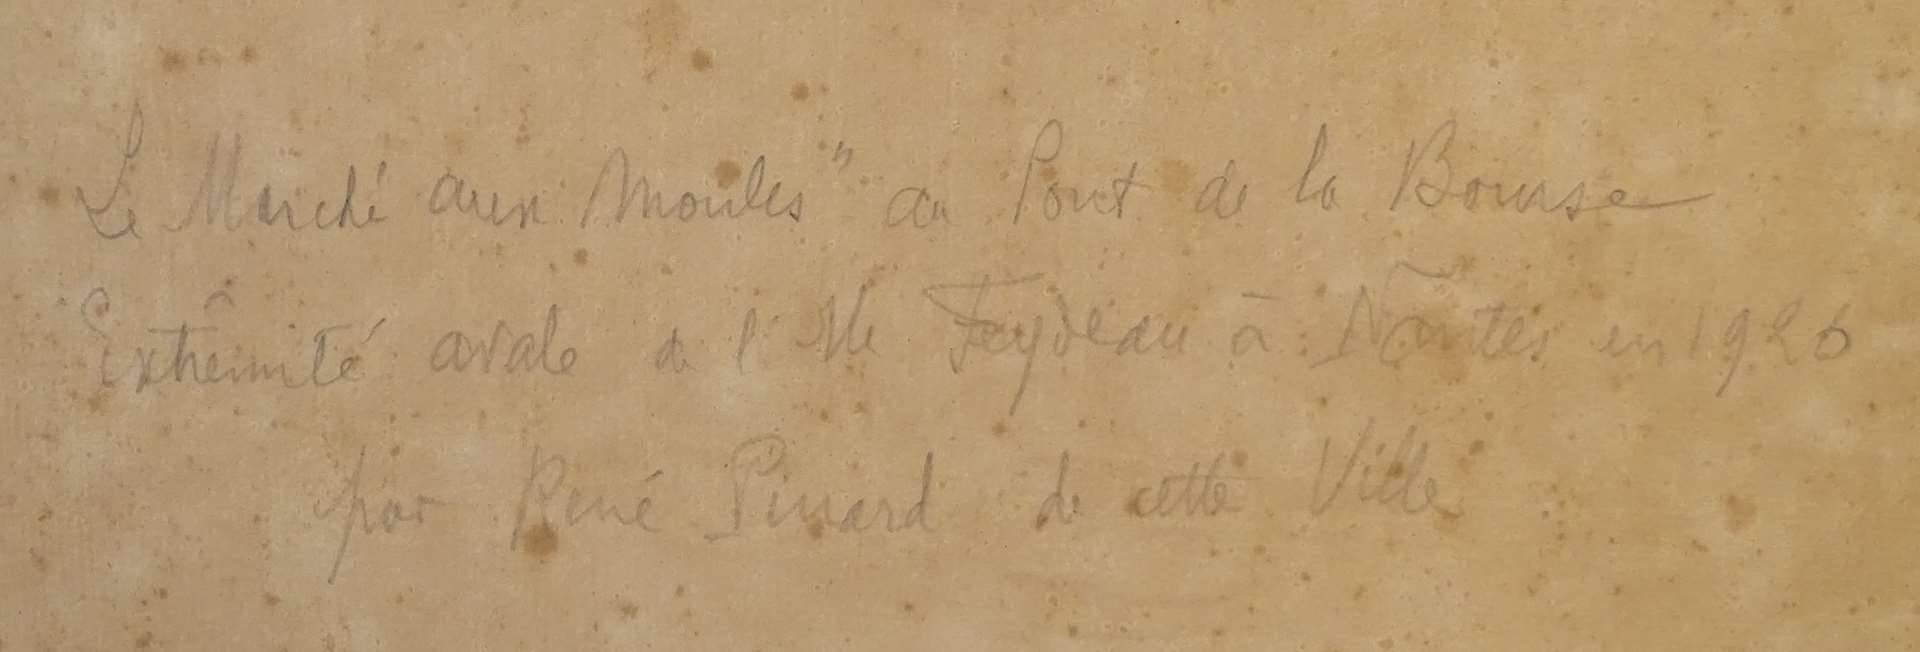 Le Marché aux Moules" au Pont de la Bourse
Extrêmité avale de l'Ile Feydeau à Nantes en 1926
par René Pinard de cette Ville